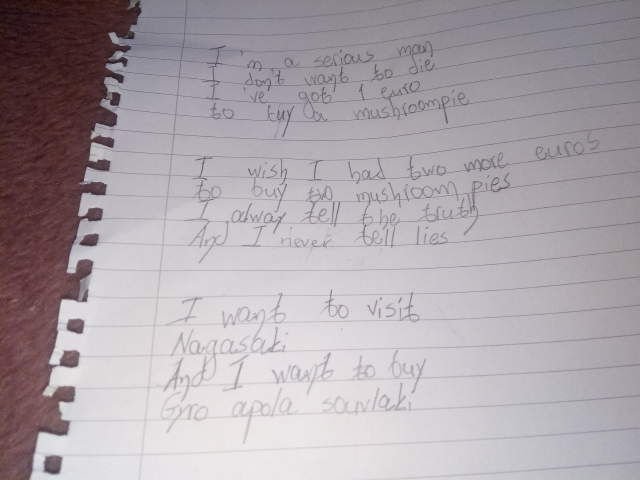 I'm a serious man
I don't want to die
I've got 1 euro
to buy a mushroompie
I wish I had two more euros
to buy two mushroom pies
I alway tell the truth
And I never tell lies
I want to visit
Nagasaki
And I want to buy
Gyro apola souvlaki